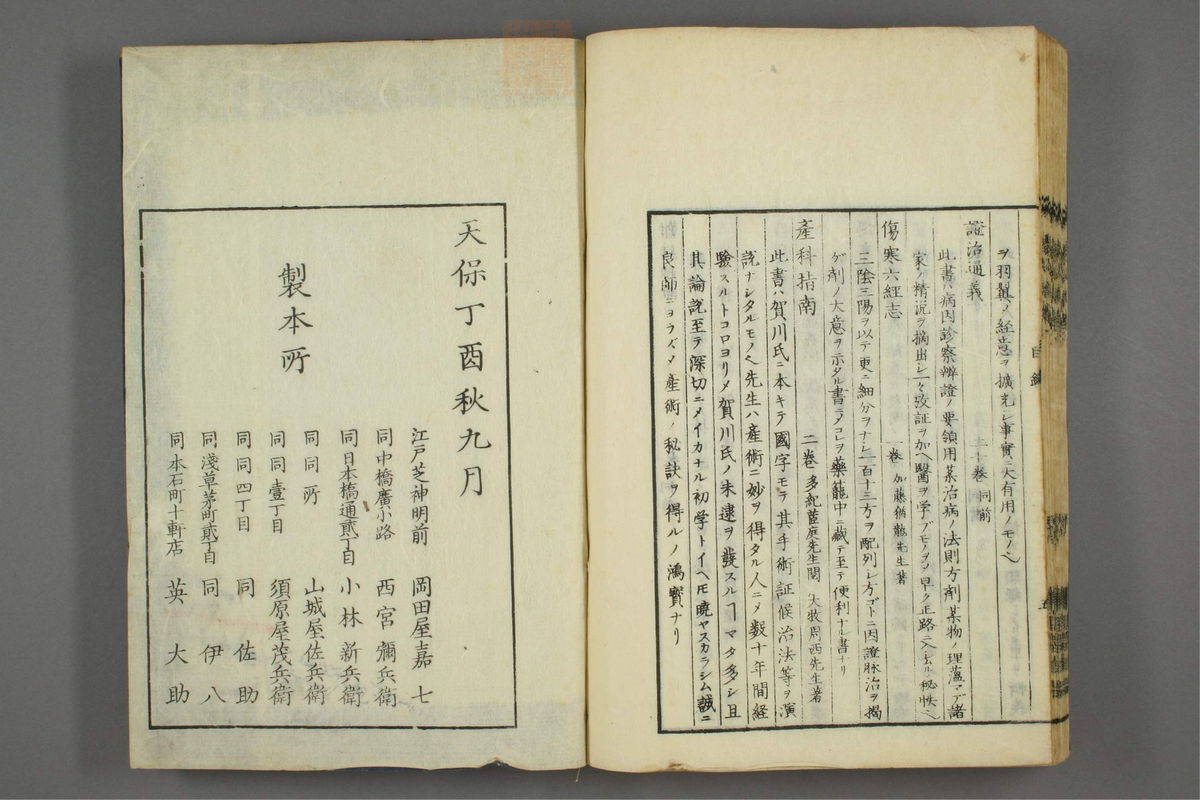 ヲ羽翼ノ経意ヲ擴充シ事實ニ大有用ノモノ
證治通義 卷 同前
此書ハ病因診察辨證ノ要領用藥治病ノ法則方劑藥物ノ理蘊マデ諸
家ノ精説ヲ摘出シ一々攷証ヲ加ヘ醫ヲ学ブモノヲ早ク正路ニ入
傷寒六經志 一卷 加藤 先生著
三陰三陽ヲ以テ更ニ細分ヲナシ一百十三方ヲ配列シ方ゴトニ因證脉治ヲ揭
ゲ劑ノ大意ヲ示タル書ラコレヲ藥籠中ニ藏テ至テ便利ナル書ナリ
產科指南 二卷 多紀茝庭先生閲 大牧周西先生著
此書ハ賀川氏ニ本キテ國字モテ其手術証候治法等ヲ演
説ナシタルモノ先生ハ産術ニ妙ヲ得タル人ニメ数十年間経
驗スルトコロヨリメ賀川氏ノ未逮ヲ發スルヿマタ多シ且
其論説至テ深切ニメイカナル初学トイヘ𪜈曉ヤスカラシム誠ニ
良師ニヨラズメ產術ノ秘訣ヲ得ルノ鴻寶ナリ
目錄
五
天保丁酉秋九月
製本所
江戸芝神明前 岡田屋嘉七
同中橋廣小路 西宮彌兵衛
同日本橋通貳丁目 小林新兵衛
同同所 山城屋佐兵衛
同同壹丁目 須原屋茂兵衛
同同四丁目 同佐助
同淺草茅町貳丁目 同伊八
同本石町十軒店 英大助